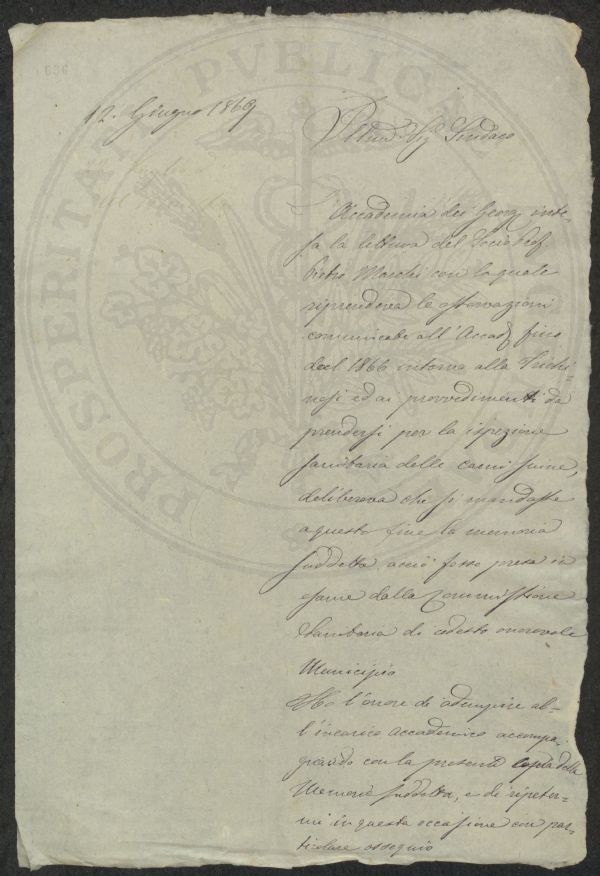 696
PROSPERITATI PVBLICAE
12. Giugno 1869
Illmo Sig Sindaco
L'Accademia dei Georg inte-
sa la lettura del Socio Prof.
Pietro Marchi con la quale
riprendeva le osservazioni
comunicate all'Accad fino
dal 1866 intorno alla Trichi
nosi ed ai provvedimenti da
prendersi per la ispezione
sanitaria delle carni suine,
deliberava che si mandasse
a questo fine la memoria
suddetta acciò fosse presa in
esame dalla Commissione
Sanitaria di codesto onorevole
Municipio
Ho l'onore di adempire al-
l'incarico accademico accompa-
gnando con la presente copia della
Memoria suddetta, e di ripeter-
mi in questa occasione con par-
ticolare ossequio